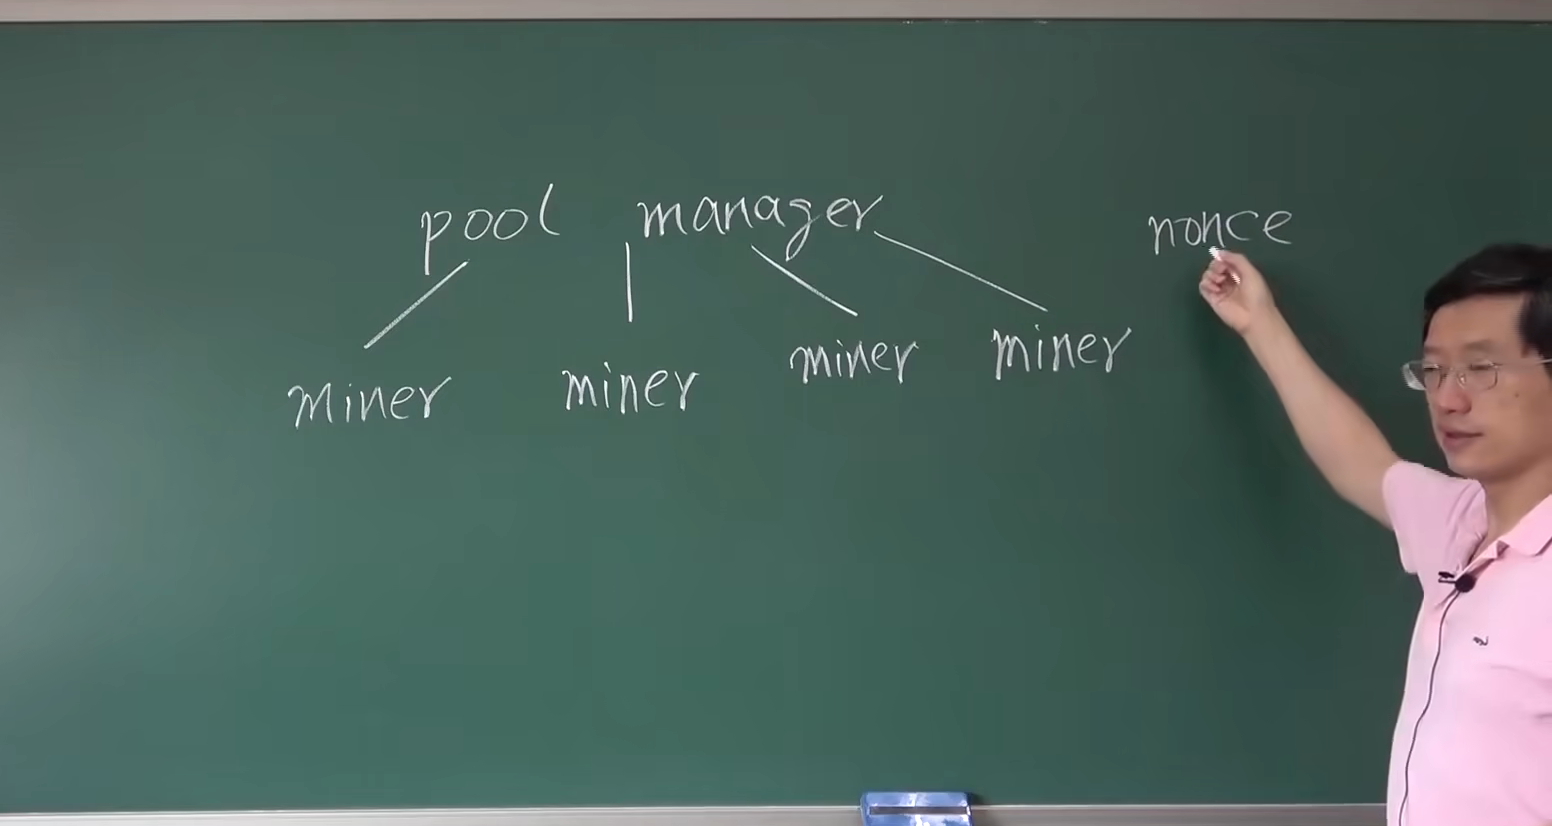 pool manager
nonce
miner miner miner miner